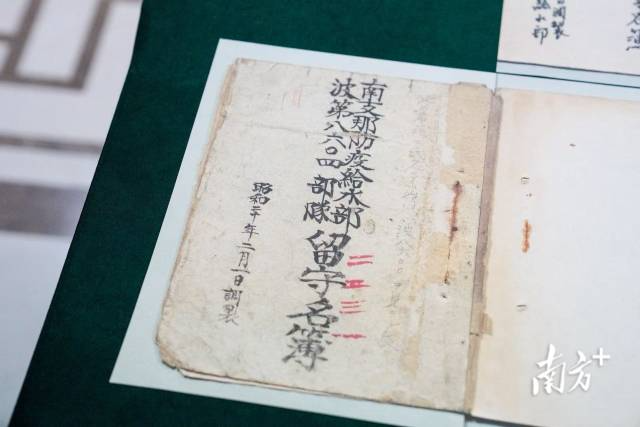 南支那防疫給水部
波第八六〇四部隊
留守名簿
二五三一
昭和二十年二月一日調製
南方+